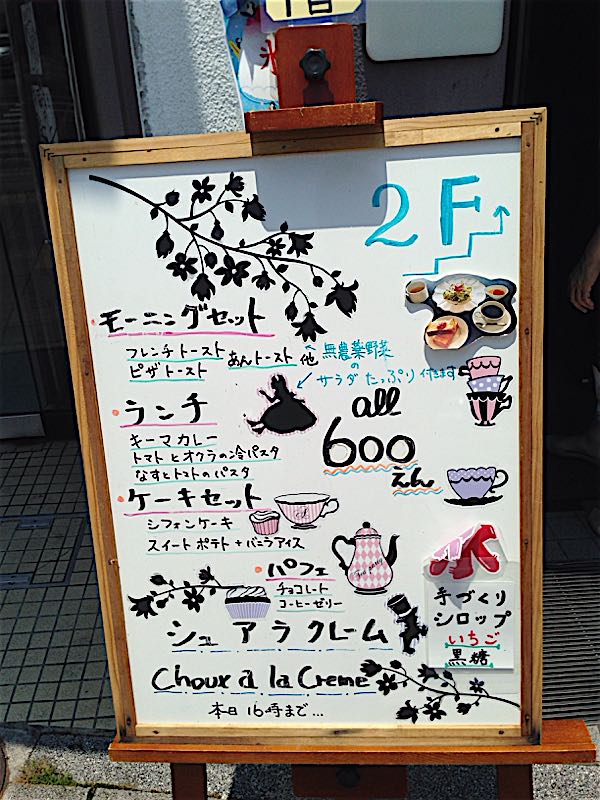 2F
モーニングセット
フレンチトースト あんトースト 他
ピザトースト
無農薬野菜
の
サラダ たっぷり 付きます
ランチ
キーマカレー
トマトとオクラの冷パスタ
なすとトマトのパスタ
all
600
えん
ケーキセット
シフォンケーキ
スイートポテト+バニラアイス
パフェ
チョコレート
コーヒーゼリー
氷
手づくり
シロップ
いちご
黒糖
シュー アラ クレーム
Choux à la Creme
本日 16時まで...